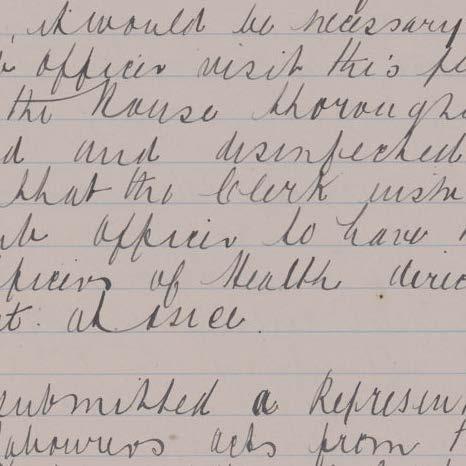 , it would be necessary
officer visit this pe
the House thorough
d and disinfected
that the Clerk inst
ub officer to have
fficers of Health direc
at once.
submitted a Represent
Labourers acts from t